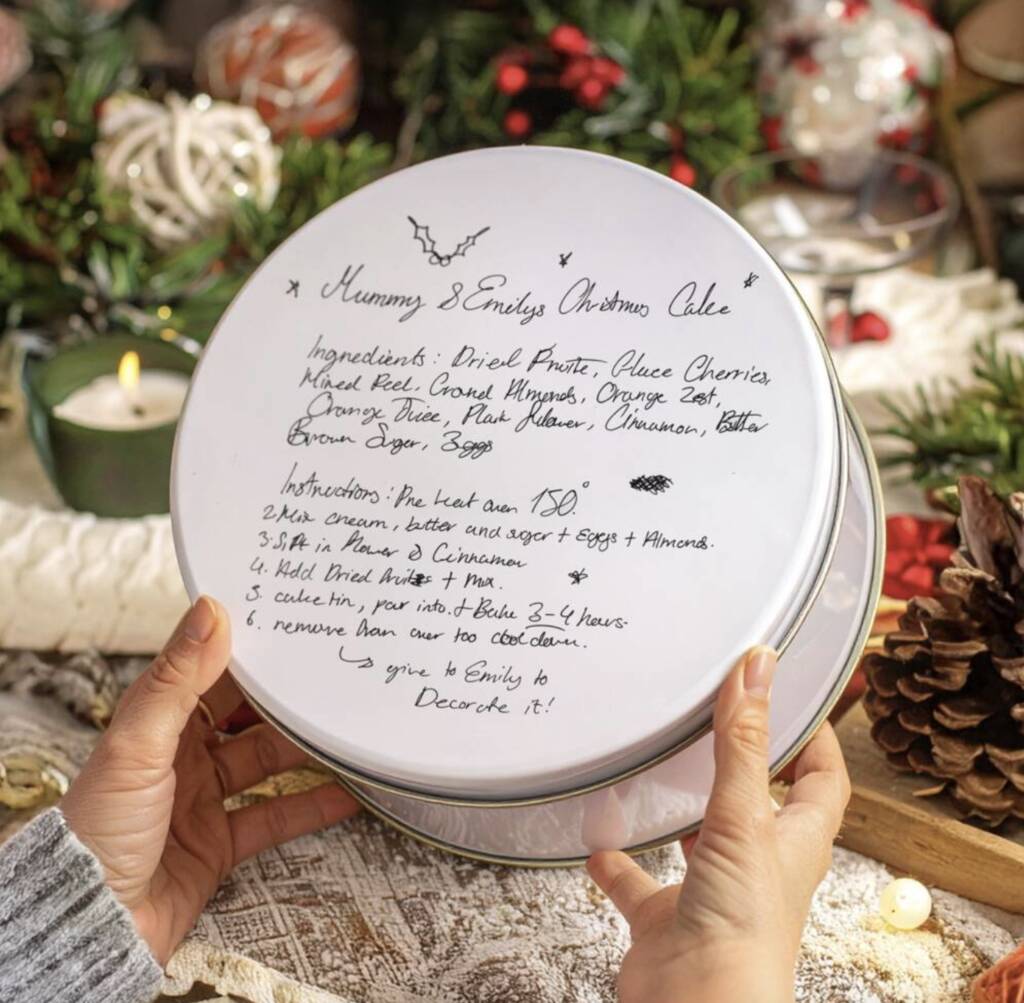 Mummy & Emilys Christmas Cake
Ingredients: Dried Fruite, Glace Cherries,
Mixed Peel, Grond Almonds, Orange Zest,
Orange Juice, Plain flower, Cinnamon, Butter
Brown Suger, 3eggs
Instructions: Pre heat oven 150°.
2. Mix cream, butter and suger + Eggs + Almonds.
3. Sift in flower & Cinnamon
4. Add Dried fruites + mix.
5. cake tin, par into. + Bake 3-4 hours.
6. remove from over too cool down.
give to Emily to
Decorate it!